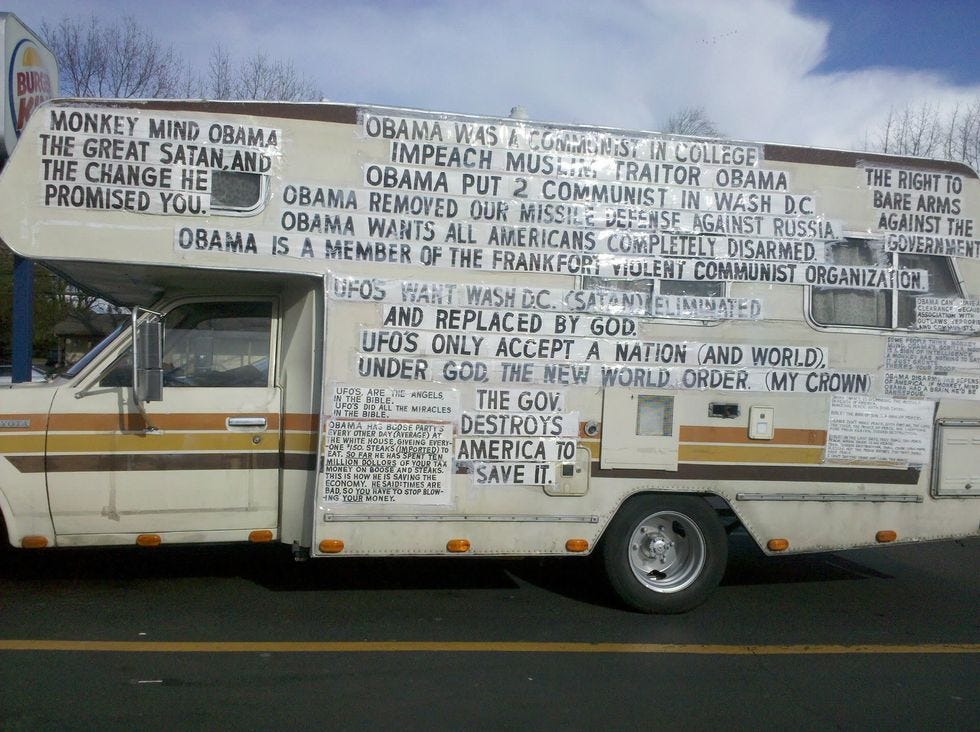 BURGER
KING
MONKEY MIND OBAMA
THE GREAT SATAN, AND
THE CHANGE HE
PROMISED YOU.
OBAMA WAS A COMMUNIST IN COLLEGE
IMPEACH MUSLIM TRAITOR OBAMA
OBAMA PUT 2 COMMUNIST IN WASH D.C.
OBAMA REMOVED OUR MISSILE DEFENSE AGAINST RUSSIA.
OBAMA WANTS ALL AMERICANS COMPLETELY DISARMED.
OBAMA IS A MEMBER OF THE FRANKFORT VIOLENT COMMUNIST ORGANIZATION.
THE RIGHT TO
BARE ARMS
AGAINST THE
GOVERNMENT
UFO'S WANT WASH D.C. (SATAN) ELIMINATED
AND REPLACED BY GOD.
UFO'S ONLY ACCEPT A NATION (AND WORLD),
UNDER GOD, THE NEW WORLD ORDER. (MY CROWN)
UFO'S ARE THE ANGELS,
IN THE BIBLE.
UFO'S DID ALL THE MIRACLES
IN THE BIBLE.
OBAMA HAS BOOSE PARTY'S
EVERY OTHER DAY (AVERAGE) AT
THE WHITE HOUSE, GIVEING EVERY-
ONE $150. STEAKS (IMPORTED) TO
EAT. SO FAR HE HAS SPENT TEN
MILLION DOLLARS OF YOUR TAX
MONEY ON BOOSE AND STEAKS.
THIS IS HOW HE IS SAVING THE
ECONOMY. HE SAID: TIMES ARE
BAD, SO YOU HAVE TO STOP BLOW-
ING YOUR MONEY.
THE GOV.
DESTROYS
AMERICA TO
SAVE IT.
OBAMA CAN
CLEARANCE BECAUSE
ASSOCIATION WITH
OUTLAWS
AND COMMUNISTS
SOME PEOPLE
TOYOTA